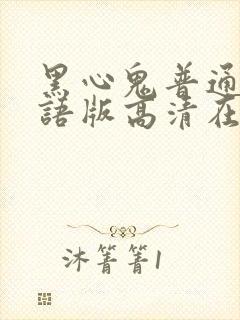 黑心鬼普通
語版高清在
沐箐箐1